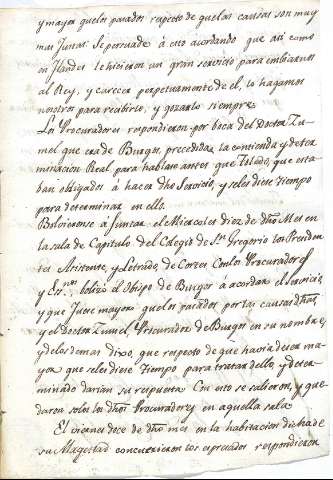 y mayor que los pasados respecto de que las causas son muy
mas Justas. Se persuade á esto acordando que así como
en Flandes le hicieron un gran servicio para embiarnos
al Rey, y carecer perpetuamente de el, lo hagamos
nosotros para recibirlo, y gozarlo siempre.
Los Procuradores respondieron por boca del Doctor Zu-
mel que era de Burgos, precedida la contienda y deter
minacion Real para hablar antes que Toledo, que esta-
ban obligados á hacer dho Servicio, y se les diese tiempo
para determinar en ello.
Bolvieronse á Juntar el Miercoles diez de dho Mes en
la sala de Capitulo del Colegio de Sn. Gregorio los Presiden
tes Asistente, y Letrado de Cortes con los Procuradores
y Esnos. bolvió el Obispo de Burgos á acordar el servicio,
y que fuese mayor que los pasados por las causas dhas,
y el Doctor Zumel Procurador de Burgos en su nombre
y de los demas dixo, que respecto de que havia de ser ma-
yor que se les diese tiempo para tratar dello, y deter-
minado darian su respuesta. Con esto se salieron, y que
daron solos los dhos Procuradores en aquella sala.
El viernes doce de dho mes en la habitacion dicha de
su Magestad concurrieron los expresados respondieron